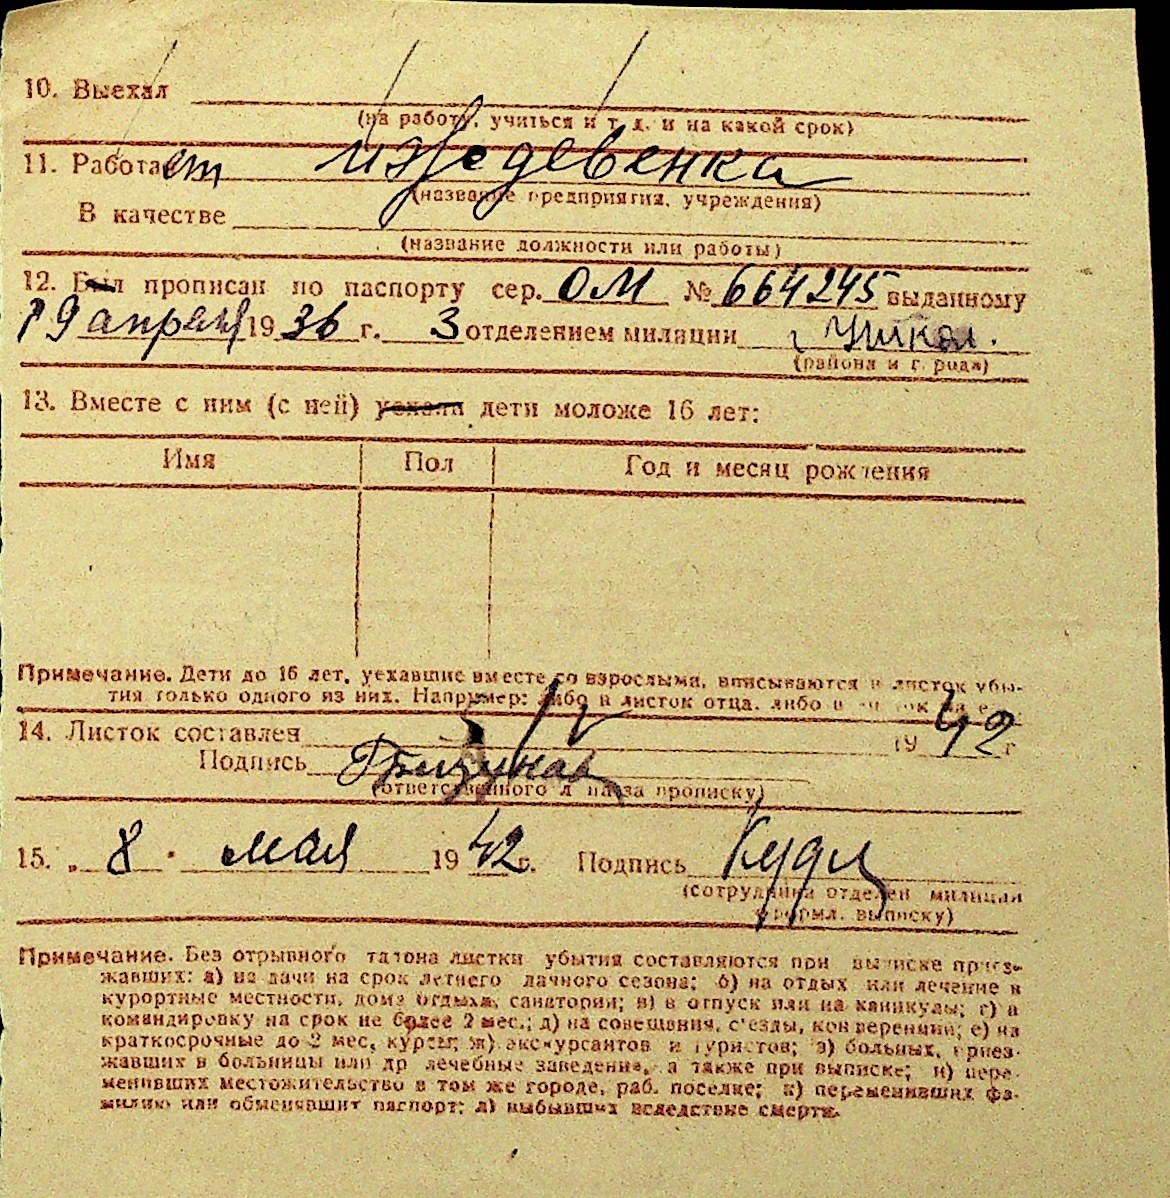 10. Выехал
(на работу, учиться и т. д. и на какой срок)
11. Работает иждевенка
(название предприятия, учреждения)
В качестве
(название должности или работы)
12. Был прописан по паспорту сер. ОМ № 664245 выданному
19 апреля 1936 г. 3 отделением милиции
(района и города)
13. Вместе с ним (с ней) уехали дети моложе 16 лет:
Имя Пол Год и месяц рождения
Примечание. Дети до 16 лет, уехавшие вместе со взрослыми, вписываются в листок убы-
тия только одного из них. Например: либо в листок отца, либо в
14. Листок составлен 1942 г
Подпись
(ответственного л за прописку)
15. „ 8 " мая 1942 г. Подпись
(сотрудника отделен милиции
оформл. выписку)
Примечание. Без отрывного талона листки убытия составляются при выписке приез-
жавших: а) на дачи на срок летнего дачного сезона; б) на отдых или лечение в
курортные местности, дома отдыха, санатории; в) в отпуск или на каникулы; г) в
командировку на срок не более 2 мес.; д) на совещания, с'езды, конференции; е) на
краткосрочные до 2 мес, курсы; ж) экскурсантов и туристов; з) больных, приез-
жавших в больницы или др лечебные заведения, а также при выписке; и) пере-
менивших местожительство в том же городе, раб. поселке; к) переменивших фа-
милию или обменявшит паспорт; л) выбывших вследствие смерти.